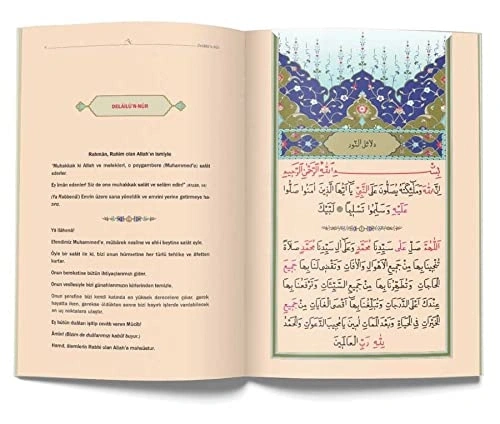 DELÂİLÜ'N-NÛR
Rahmân, Rahîm olan Allah'ın ismiyle
"Muhakkak ki Allah ve melekleri, o peygambere (Muhammed'e) salât
ederler.
Ey îmân edenler! Siz de ona muhakkak salât ve selâm edin!"
(Ya Rabbenâ!) Emrin üzere sana yöneldik ve emrini yerine getirmeye hazırız.
Yâ İlâhenâ!
Efendimiz Muhammed'e, mübârek nesline ve ehl-i beytine salât eyle.
Öyle bir salât ki, bizi onun hürmetine her türlü tehlike ve âfetten
kurtar.
Onun bereketine bütün ihtiyaçlarımızı gider.
Onun vesilesiyle bizi günahlarımızın kirlerinden temizle.
Onun şerefine bizi kendi katında en yüksek derecelere çıkar, gerek
hayatta iken, gerekse öldükten sonra bizi hayırlı işlerde varılabilecek
en uç noktalara ulaştır.
Ey bütün duâları işitip cevâb veren Mücîb!
Âmîn! (Bizim de dualarımızı kabûl buyur.)
Hamd, âlemlerin Rabbi olan Allah'a mahsûstur.
دلائل النور
بِسْمِ اللهِ الرَّحْمٰنِ الرَّحِيمِ
اِنَّ اللهَ وَمَلٰئِكَتَهُ يُصَلُّونَ عَلَى النَّبِيِّ يَا اَيُّهَا الَّذِينَ اٰمَنُوا صَلُّوا
عَلَيْهِ وَسَلِّمُوا تَسْلِيمًا ❀ لَبَّيْكَ
اَللّٰهُمَّ صَلِّ عَلٰى سَيِّدِنَا مُحَمَّدٍ وَعَلٰى اٰلِ سَيِّدِنَا مُحَمَّدٍ صَلَاةً
تُنْجِينَا بِهَا مِنْ جَمِيعِ الْاَهْوَالِ وَالْاٰفَاتِ وَتَقْضِي لَنَا بِهَا جَمِيعَ
الْحَاجَاتِ وَتُطَهِّرُنَا بِهَا مِنْ جَمِيعِ السَّيِّئَاتِ وَتَرْفَعُنَا بِهَا
عِنْدَكَ اَعْلَى الدَّرَجَاتِ وَتُبَلِّغُنَا بِهَا اَقْصَى الْغَايَاتِ مِنْ جَمِيعِ
الْخَيْرَاتِ فِي الْحَيَاةِ وَبَعْدَ الْمَمَاتِ اٰمِينَ يَا مُجِيبَ الدَّعَوَاتِ وَالْحَمْدُ
لِلّٰهِ رَبِّ الْعَالَمِينَ